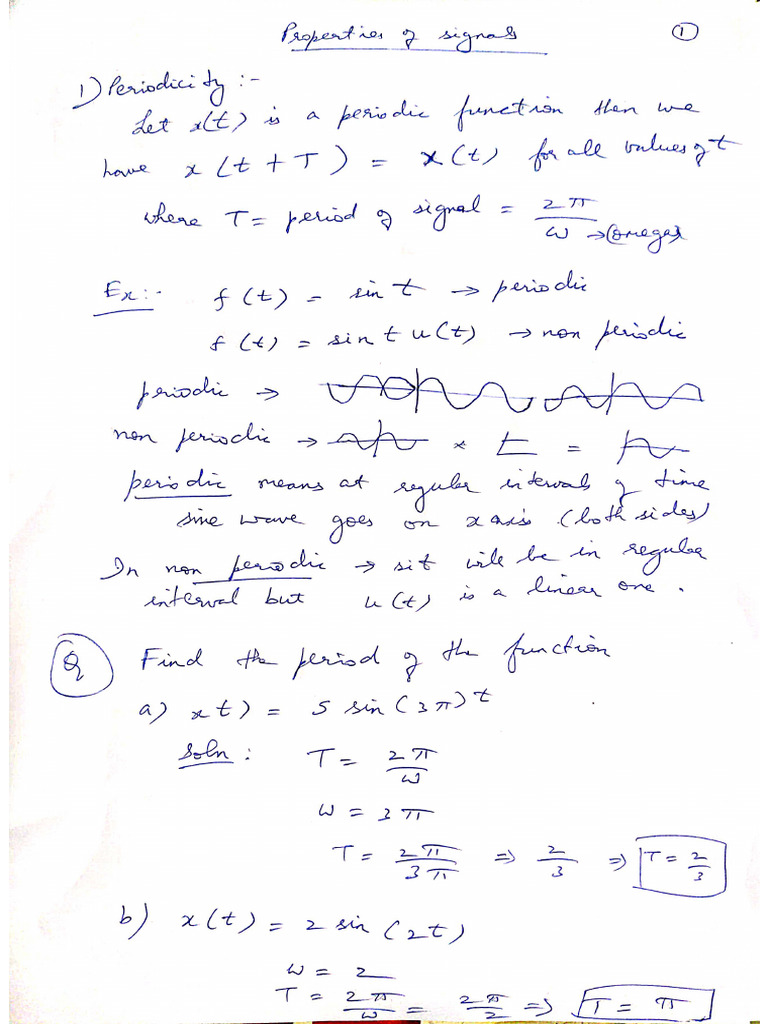 Properties of signals
①
1) Periodicity :-
Let x(t) is a periodic function then we
have x(t + T) = x(t) for all values of t
where T = period of signal = 2π/ω → (omega)
Ex:- f(t) = sin t → periodic
f(t) = sin t u(t) → non periodic
periodic →
non periodic → × =
periodic means at regular intervals of time
sine wave goes on x axis (both sides)
In non periodic → sit will be in regular
interval but u(t) is a linear one.
Q Find the period of the function
a) xt) = 5 sin(3π)t
Soln: T = 2π/ω
ω = 3π
T = 2π/3π ⇒ 2/3 ⇒ T = 2/3
b) x(t) = 2 sin(2t)
ω = 2
T = 2π/ω = 2π/2 ⇒ T = π